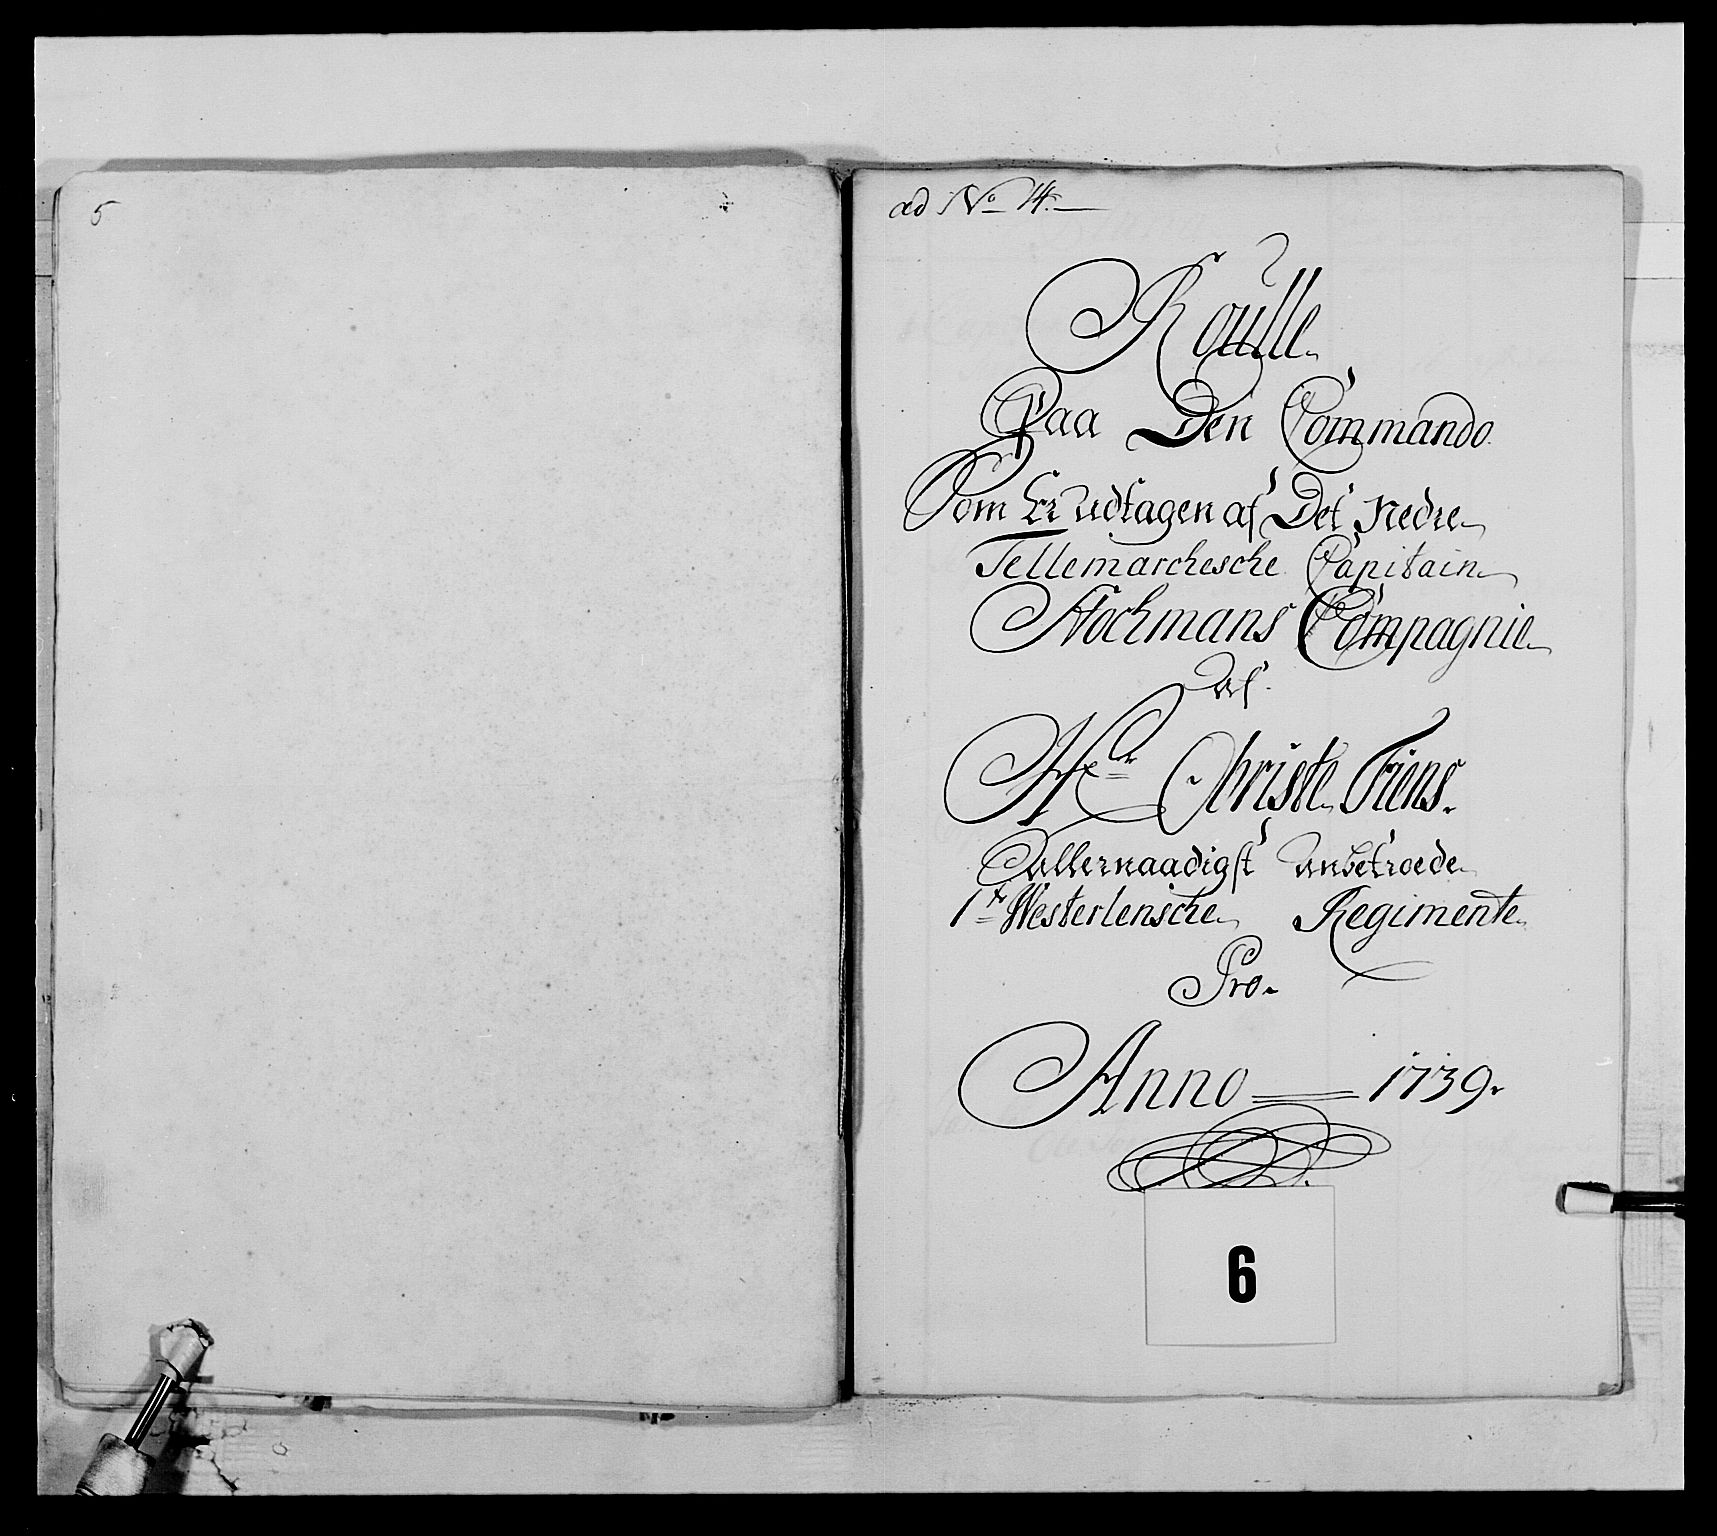 5
ad No 14.
Roulle
Paa Den Commando
Som Er udtagen af Det Nedre
Tellemarchesche Capitain
Stochmans Compagnie
af
Hr Christe Friens.
allernaadigst anbetroede
1te Westerlensche Regimente
Pro.
Anno 1739.
6